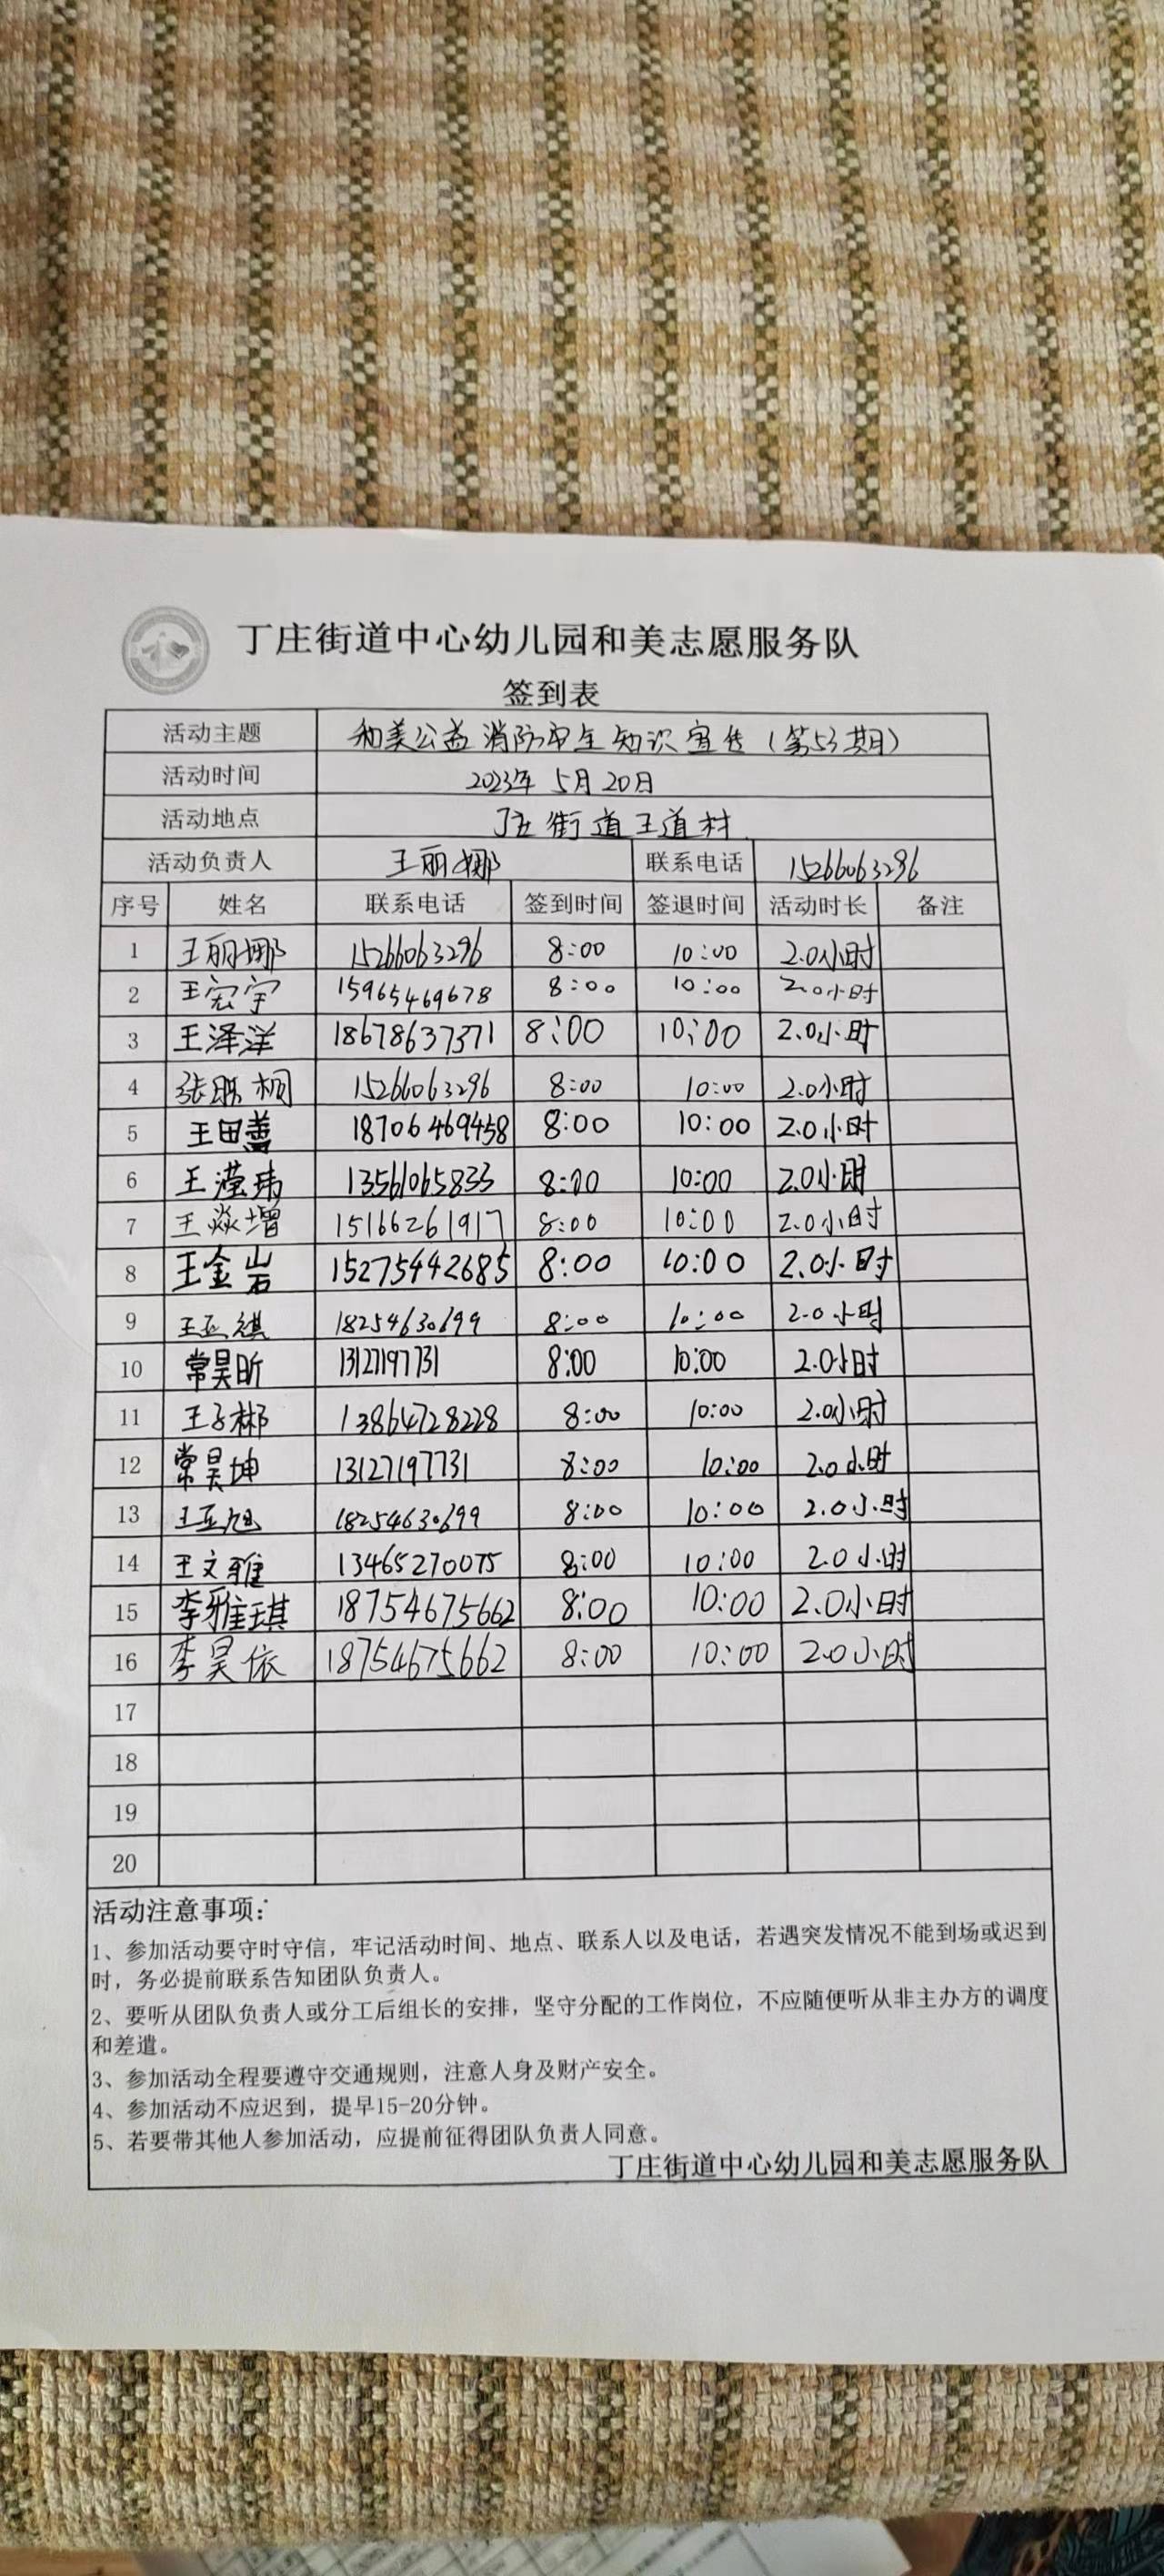 丁庄街道中心幼儿园和美志愿服务队
签到表
活动主题 和美公益 消防安全知识宣传(第53期)
活动时间 2023年 5月20日
活动地点 丁庄街道王道村
活动负责人 王丽娜 联系电话 15266063296
序号 姓名 联系电话 签到时间 签退时间 活动时长 备注
1 王丽娜 15266063296 8:00 10:00 2.0小时
2 王宏宇 15965469678 8:00 10:00 2.0小时
3 王泽洋 18678637371 8:00 10:00 2.0小时
4 张 桐 15266063296 8:00 10:00 2.0小时
5 王田蕾 18706469458 8:00 10:00 2.0小时
6 王滢玮 13561065833 8:00 10:00 2.0小时
7 王焱增 15166261917 8:00 10:00 2.0小时
8 王金岩 15275442685 8:00 10:00 2.0小时
9 王亚祺 18254630699 8:00 10:00 2.0小时
10 常昊昕 13127197731 8:00 10:00 2.0小时
11 王子彬 13864728228 8:00 10:00 2.0小时
12 常昊坤 13127197731 8:00 10:00 2.0小时
13 王亚旭 18254630699 8:00 10:00 2.0小时
14 王文雅 13465270075 8:00 10:00 2.0小时
15 李雅琪 18754675662 8:00 10:00 2.0小时
16 李昊依 18754675662 8:00 10:00 2.0小时
17
18
19
20
活动注意事项:
1、参加活动要守时守信，牢记活动时间、地点、联系人以及电话，若遇突发情况不能到场或迟到
时，务必提前联系告知团队负责人。
2、要听从团队负责人或分工后组长的安排，坚守分配的工作岗位，不应随便听从非主办方的调度
和差遣。
3、参加活动全程要遵守交通规则，注意人身及财产安全。
4、参加活动不应迟到，提早15-20分钟。
5、若要带其他人参加活动，应提前征得团队负责人同意。
丁庄街道中心幼儿园和美志愿服务队